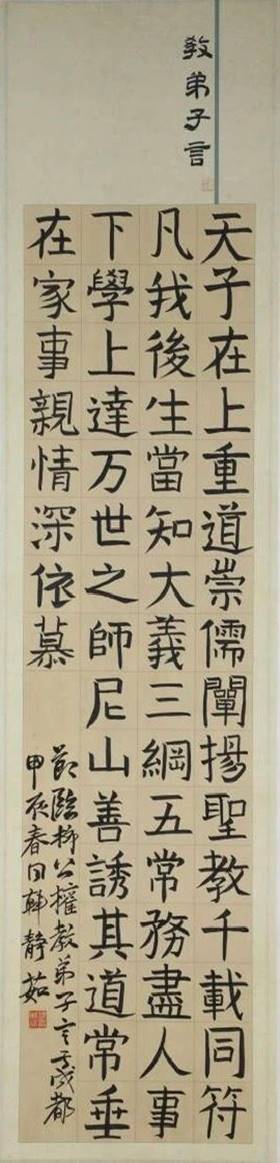 教弟子言
天子在上重道崇儒闡揚聖教千載同符
凡我後生當知大義三綱五常務盡人事
下學上達万世之師尼山善誘其道常垂
在家事親情深依慕
節臨柳公權教弟子言于成都
甲辰春日韓靜茹